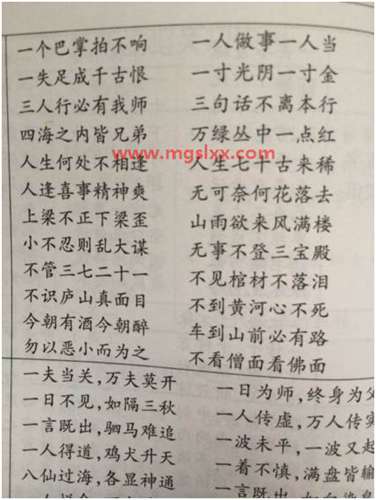 一个巴掌拍不响
一失足成千古恨
三人行必有我师
四海之内皆兄弟
人生何处不相逢
人逢喜事精神爽
上梁不正下梁歪
小不忍则乱大谋
不管三七二十一
不识庐山真面目
今朝有酒今朝醉
勿以恶小而为之
一人做事一人当
一寸光阴一寸金
三句话不离本行
万绿丛中一点红
www.mgslxx.com
人生七十古来稀
无可奈何花落去
山雨欲来风满楼
无事不登三宝殿
不见棺材不落泪
不到黄河心不死
车到山前必有路
不看僧面看佛面
一夫当关，万夫莫开
一日不见，如隔三秋
一言既出，驷马难追
一人得道，鸡犬升天
八仙过海，各显神通
一日为师，终身为父
一人传虚，万人传实
一波未平，一波又起
一着不慎，满盘皆输